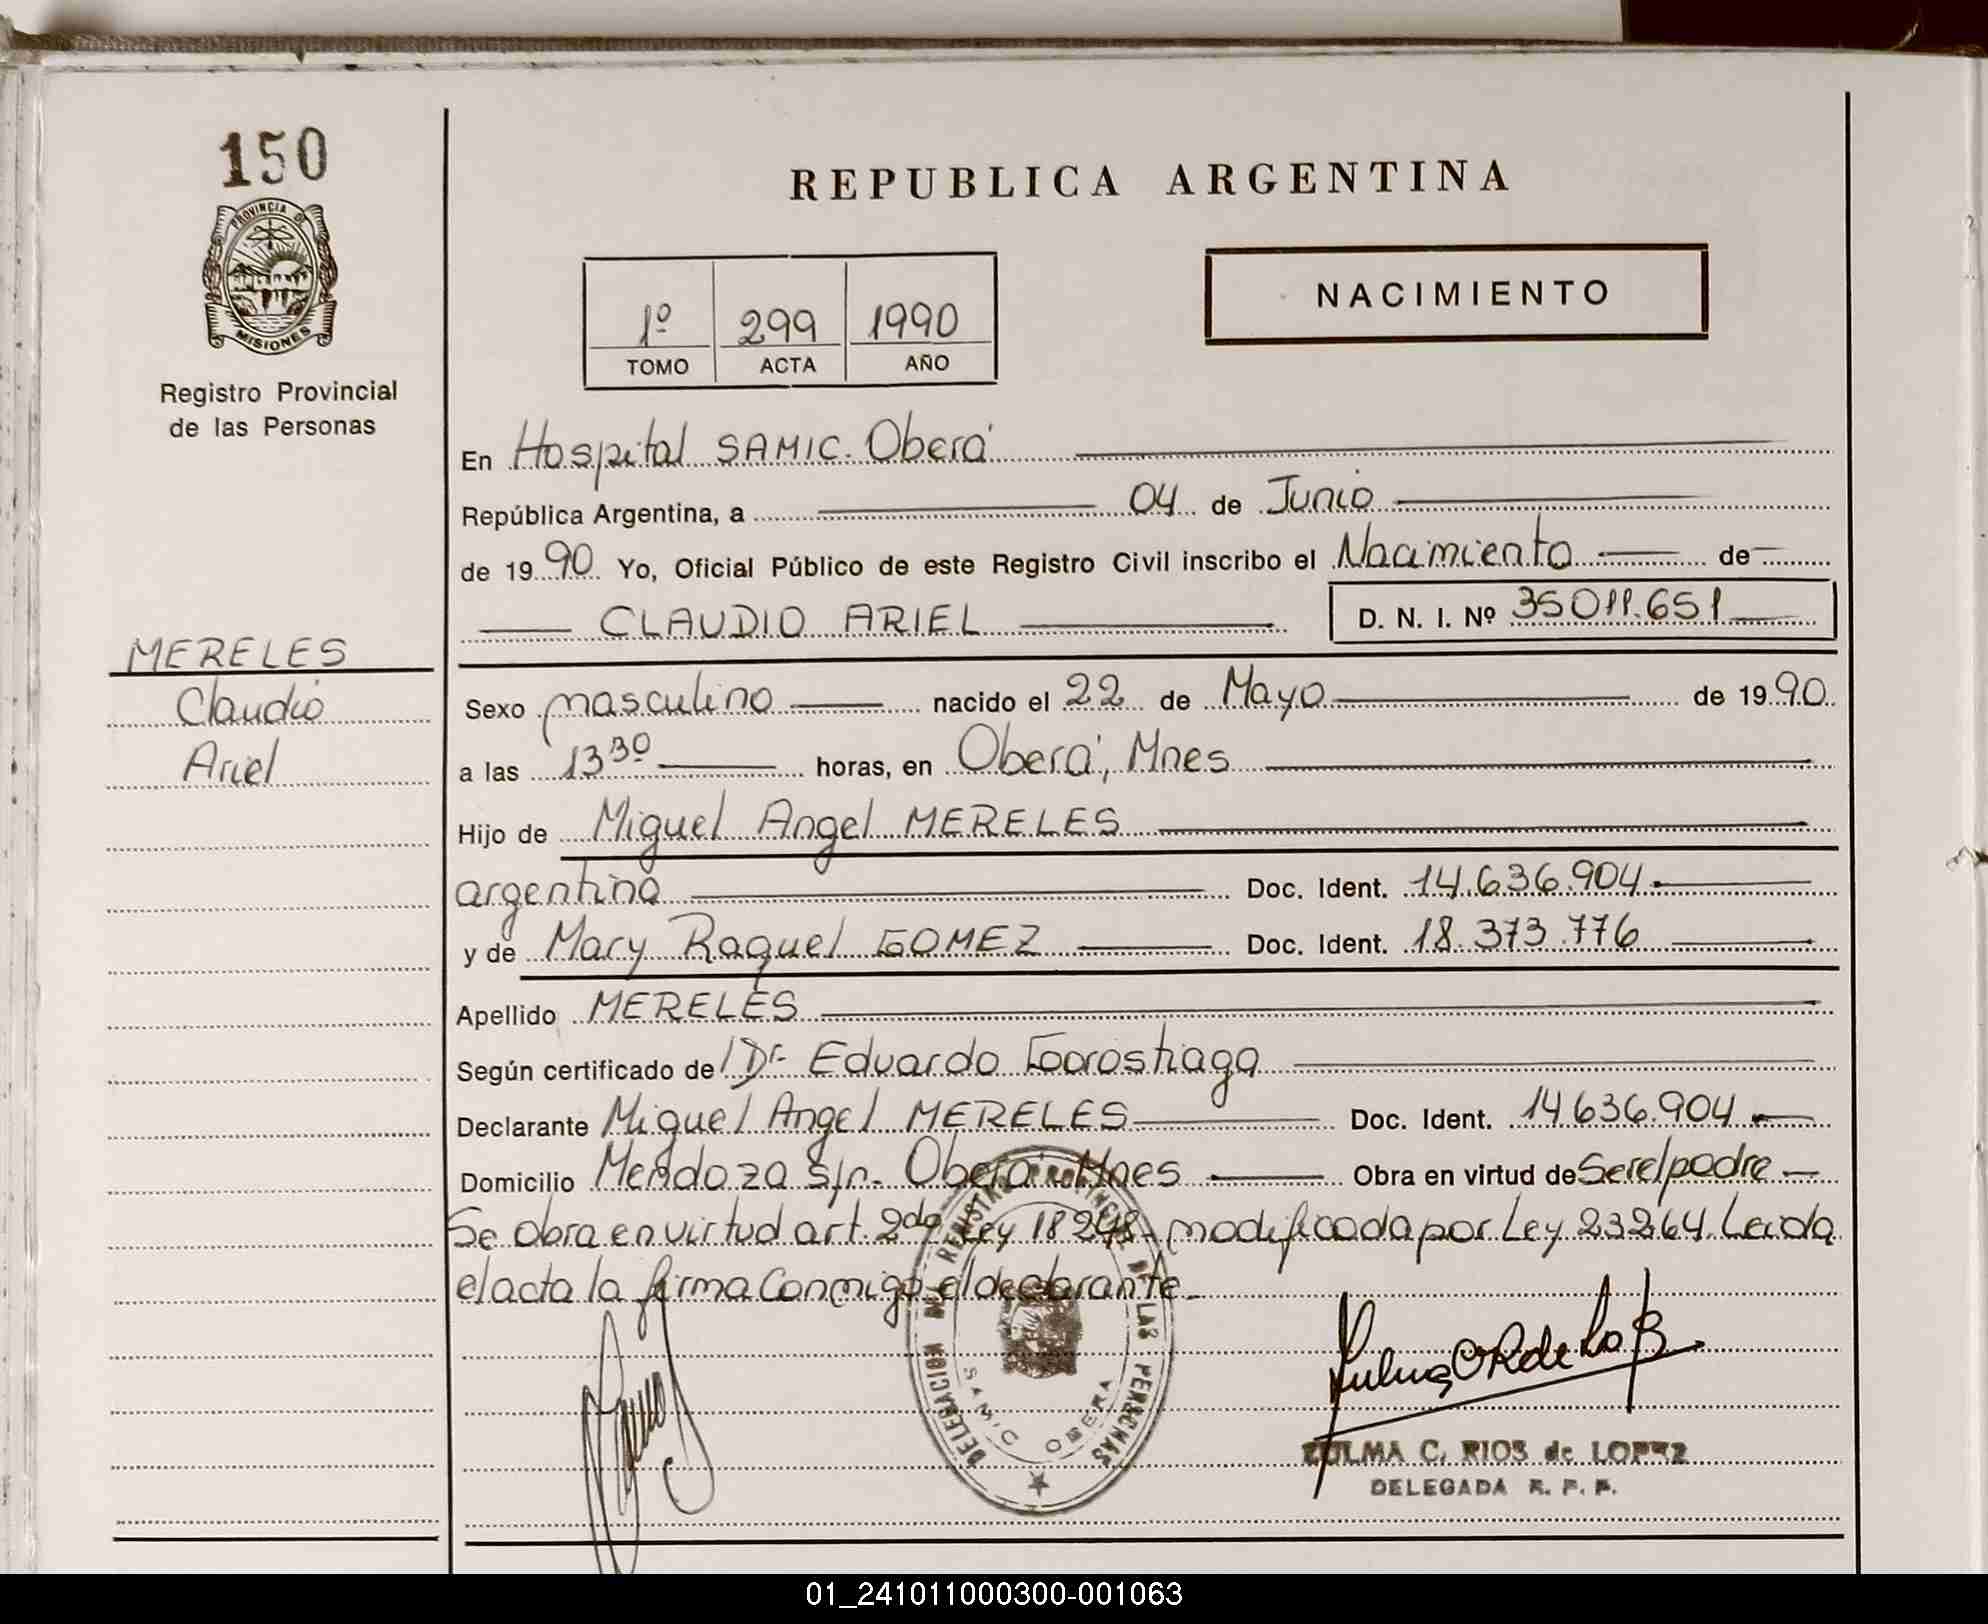 150
PROVINCIA DE
MISIONES
Registro Provincial
de las Personas
REPUBLICA ARGENTINA
1º 299 1990
TOMO ACTA AÑO
NACIMIENTO
En Hospital SAMIC. Oberá
República Argentina, a 04 de Junio
de 1990 Yo, Oficial Público de este Registro Civil inscribo el Nacimiento de
CLAUDIO ARIEL D. N. I. Nº 35011.651
MERELES
Claudio
Ariel
Sexo masculino nacido el 22 de Mayo de 1990
a las 13 30 horas, en Oberá, Mnes
Hijo de Miguel Angel MERELES
argentino Doc. Ident. 14.636.904
y de Mary Raquel GOMEZ Doc. Ident. 18.373.776
Apellido MERELES
Según certificado de Dr Eduardo
Declarante Miguel Angel MERELES Doc. Ident. 14.636.904
Domicilio Mendoza s/n. Oberá Mnes Obra en virtud de Ser el padre
Se obra en virtud art. 2do Ley 18248 modificada por Ley 23264. Leida
el acta la firma conmigo el declarante
DELEGACION REGISTRO PROVINCIAL DE LAS PERSONAS
SAMIC OBERA
ZULMA C. RIOS de LOPEZ
DELEGADA R. P. P.
01_241011000300-001063